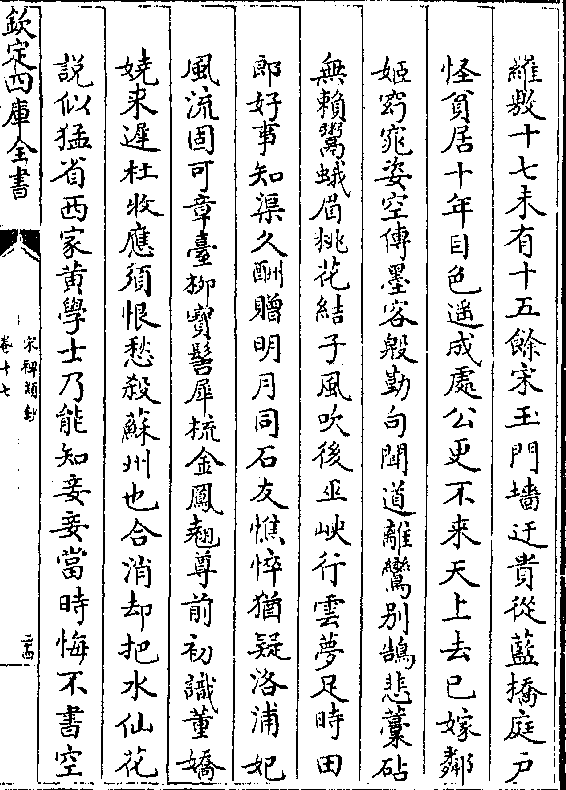 羅敷十七未有十五餘宋玉門墻迂貴從藍橋庭戶
怪貧居十年目色遥成處公更不来天上去已嫁鄰
姬窈窕姿空傳墨客殷勤句聞道離鸞别鵠悲藁砧
無賴鬻蛾眉桃花結子風吹後巫峽行雲夢足時田
郎好事知渠久酬贈明月同石友憔悴猶疑洛浦妃
風流固可章臺栁寳髻犀梳金鳳翹尊前初識董嬌
嬈来遲杜牧應須恨愁殺蘇州也合消却把水仙花
説似猛省西家黄學士乃能知妾妾當時悔不書空
欽定四庫全書
宋稗類鈔
卷十七
二十四